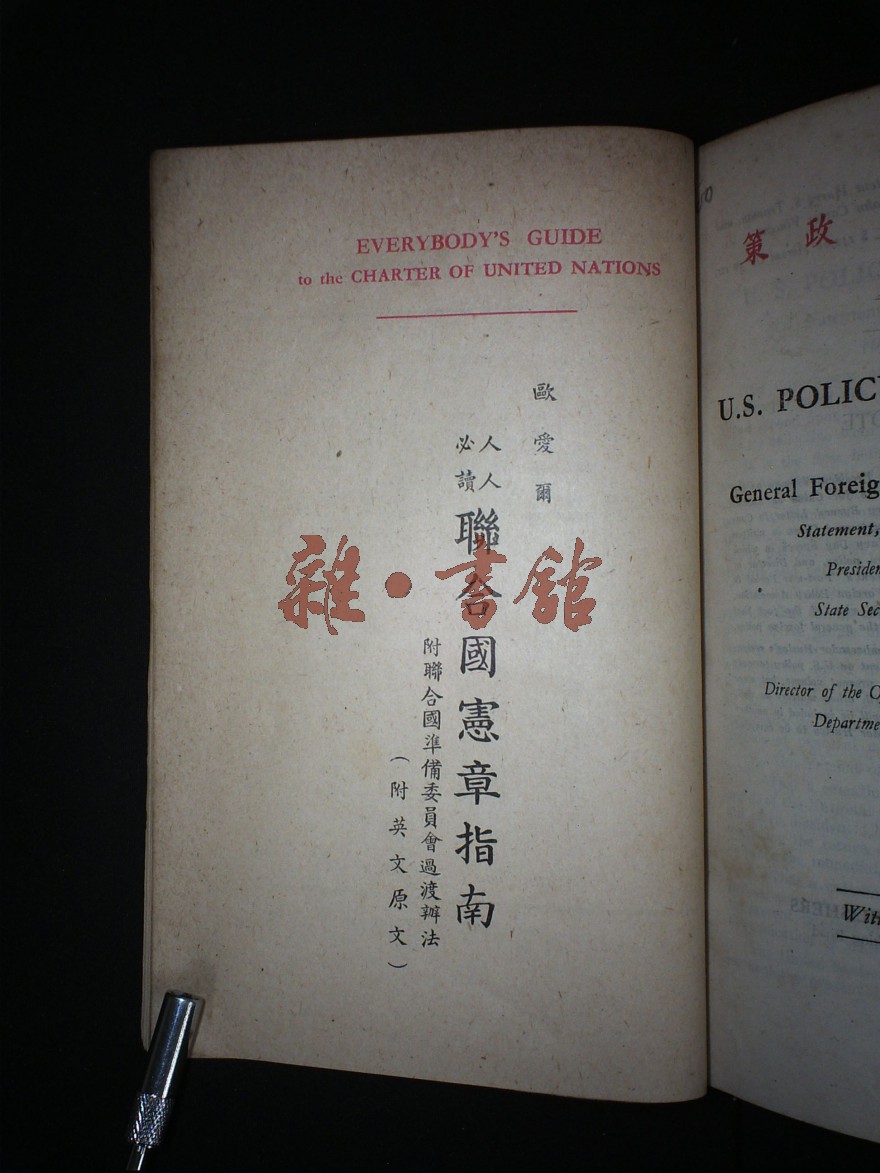 EVERYBODY'S GUIDE
to the CHARTER OF UNITED NATIONS
歐愛爾
人人必讀
聯合國憲章指南
附聯合國準備委員會過渡辦法
（附英文原文）
雜·書館
政策
U.S. POLIC
General Foreig
Statement,
Presiden
State Sec
Director of the
Departme
With